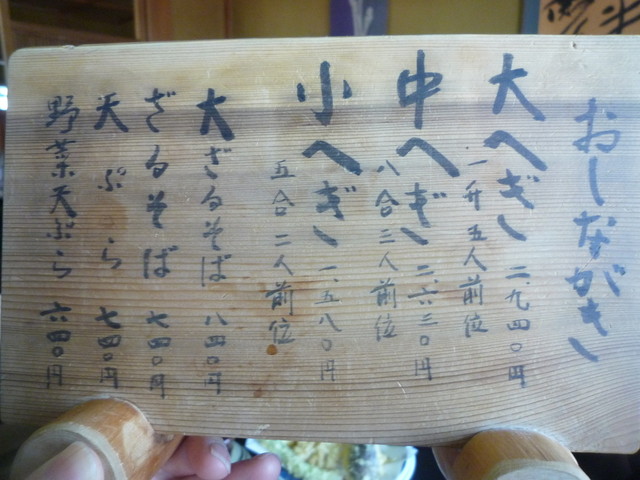 おしながき
大へぎ 二、九四〇円
一升 五人前位
中へぎ 二、六三〇円
八合 三人前位
小へぎ 一、五八〇円
五合 二人前位
大ざるそば 八四〇円
ざるそば 七四〇円
天ぷら 七四〇円
野菜天ぷら 六四〇円